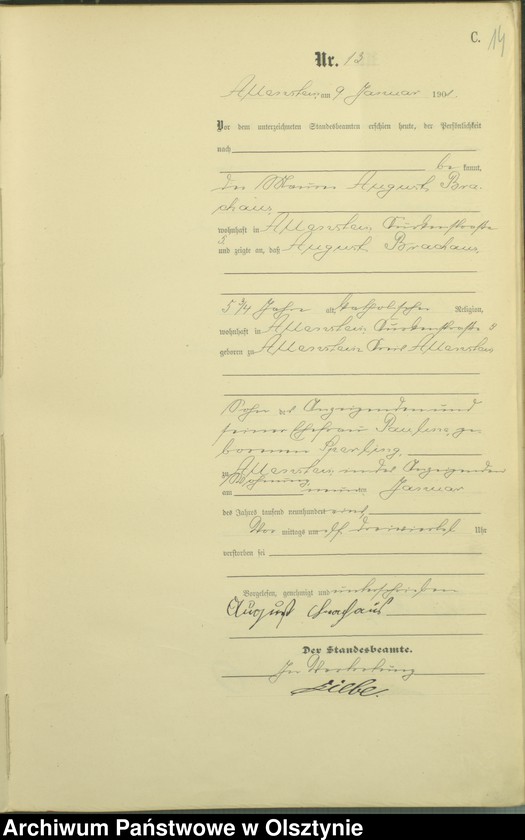 C. 14
Nr. 13
Allenstein, am 9 Januar 1901.
Vor dem unterzeichneten Standesbeamten erschien heute, der Persönlichkeit
nach
be kannt,
der Maurer August Bra-
chaus,
wohnhaft in Allenstein,
und zeigte an, daß August Brachaus,
5 3/4 Jahre alt, katholischer Religion,
wohnhaft in Allenstein,
geboren zu Allenstein Kreis Allenstein
Sohn des Anzeigenden und
seiner Ehefrau Pauline, ge-
borenen Sperling,
zu Allenstein, in des Anzeigenden
Wohnung,
am neun Januar
des Jahres tausend neunhundert eins,
Vor mittags um elf dreiviertel Uhr
verstorben sei
Vorgelesen, genehmigt und unterschrieben
August Brachaus
Der Standesbeamte.
In Vertretung
Archiwum Państwowe w Olsztynie